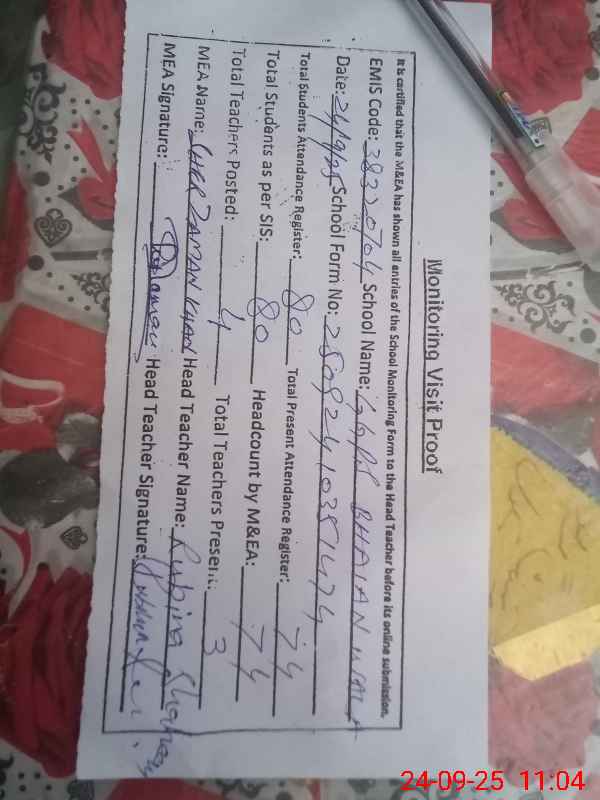 Monitoring Visit Proof
It is certified that the M&EA has shown all entries of the School Monitoring Form to the Head Teacher before its online submission.
EMIS Code: 38320704 School Name: GGPS BHAIAN WALA
Date: 24/9/25 School Form No: 25092410351474
Total Students Attendance Register: 80 Total Present Attendance Register: 74
Total Students as per SIS: 80 Headcount by M&EA: 74
Total Teachers Posted: 4 Total Teachers Present: 3
MEA Name: SHER ZAMAN KHAN Head Teacher Name: Rubina Shaheen
MEA Signature: Head Teacher Signature:
24-09-25 11:04